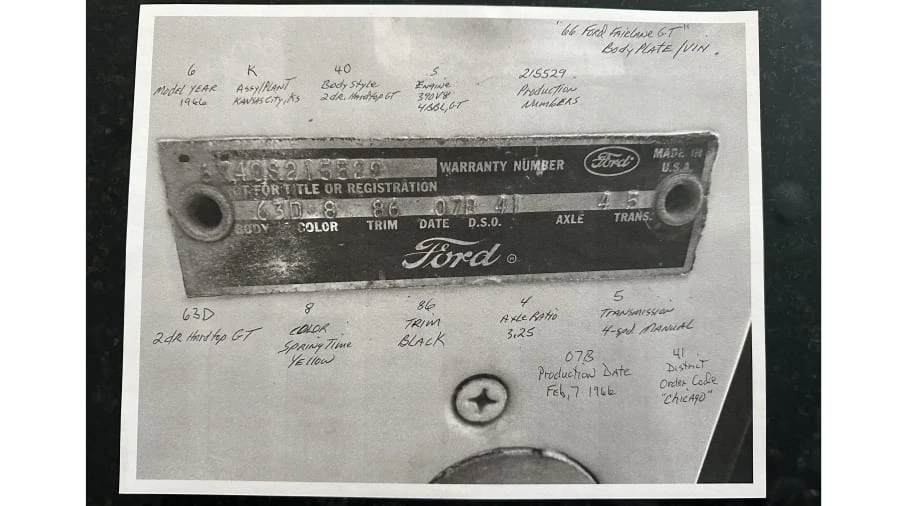 "66 Ford Fairlane GT"
Body Plate/VIN.
6 K 40 S 215529
Model Year Assy/Plant Body Style Engine Production
1966 Kansas City, Ks 2dr. Hardtop GT 390 V8 Numbers
4BBL, GT
740S215529 WARRANTY NUMBER Ford MADE IN
U.S.A.
T FOR TITLE OR REGISTRATION
63D 8 86 07B 41 4 5
BODY COLOR TRIM DATE D.S.O. AXLE TRANS.
Ford ®
63D 8 86 4 5
2dr Hardtop GT Color Trim Axle Ratio Transmission
Spring Time Black 3.25 4-spd. Manual
Yellow
07B 41
Production Date District
Feb, 7 1966 Order Code
"Chicago"